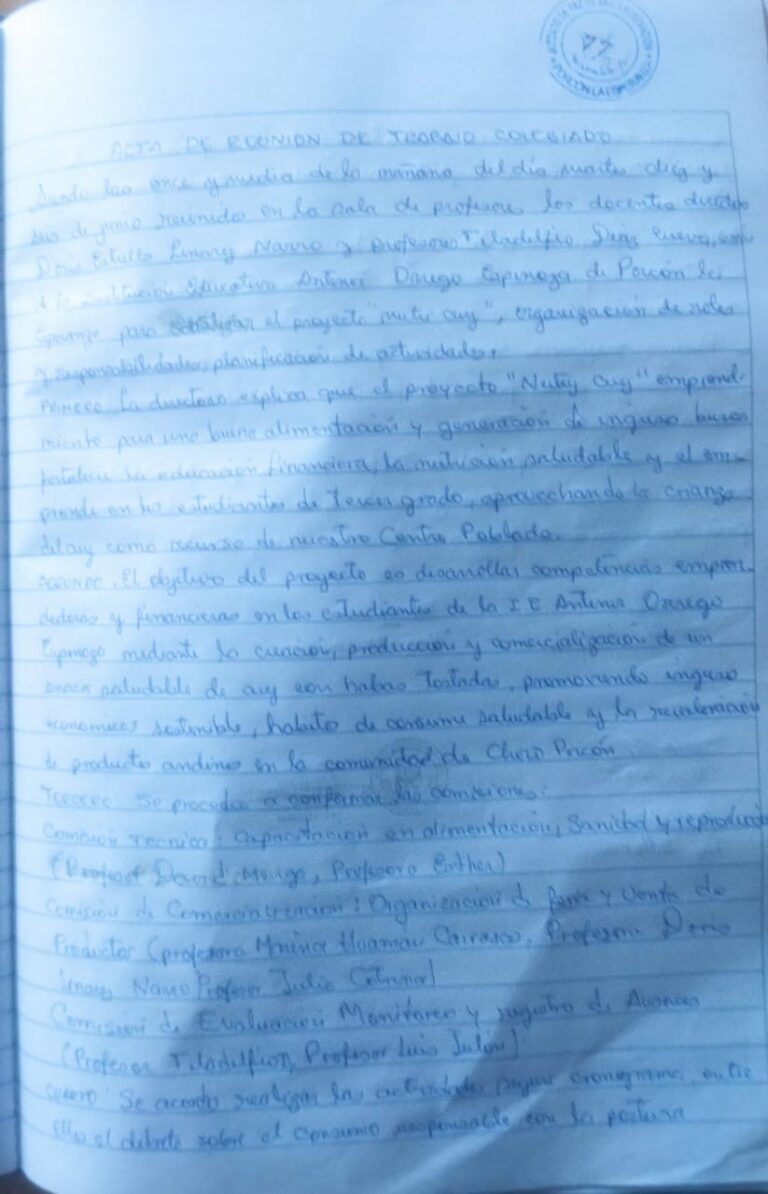 PORCON LA ESPERANZA
ACTA DE REUNION DE TRABAJO COLEGIADO
Siendo las once y media de la mañana del día martes diez y
de junio reunidos en la sala de profesores los docentes
Doris Linares Narro y profesores Teladelfio Dias Cueva,
de la Institución Educativa Antenor Orrego Espinoza de Porcón la
Esperanza para el proyecto "nutri cuy", organización de roles
y responsabilidades, planificación de actividades.
PRIMERO La directora explica que el proyecto "Nutry Cuy" emprendi
miento para una buena alimentación y generación de ingreso busca
fortalecer la educación financiera, la nutrición saludable y el em-
prende en los estudiantes de Tercer grado, aprovechando la crianza
del cuy como recurso de nuestro Centro Poblado.
SEGUNDO. El objetivo del proyecto es desarrollar competencias empren-
dedoras y financieras en los estudiantes de la I.E Antenor Orrego
Espinoza mediante la creación, producción y comercialización de un
snack saludable de cuy con habas Tostadas, promoviendo ingreso
economicos sostenible, habito de consumo saludable y la revaloración
de producto andinos en la comunidad de Porcón.
TERCERO Se procedio a conformar las comisiones:
Comisión Tecnico: Capacitación en alimentación, Sanidad y reproducc
(Profesor David , Profesora Esther)
Comisión de Comercialización: Organización de ferias y Venta de
Productos (profesora Huamán Carrasco, Profesora Doris
Linares Narro Profesor Julio )
Comisión de Evaluación Monitoreo y registro de Avances
(Profesor Teladelfio, Profesor Luis Julón)
Se acordo realizar las actividades segun cronograma, entre
ellos el debate sobre el consumo responsable con la postura